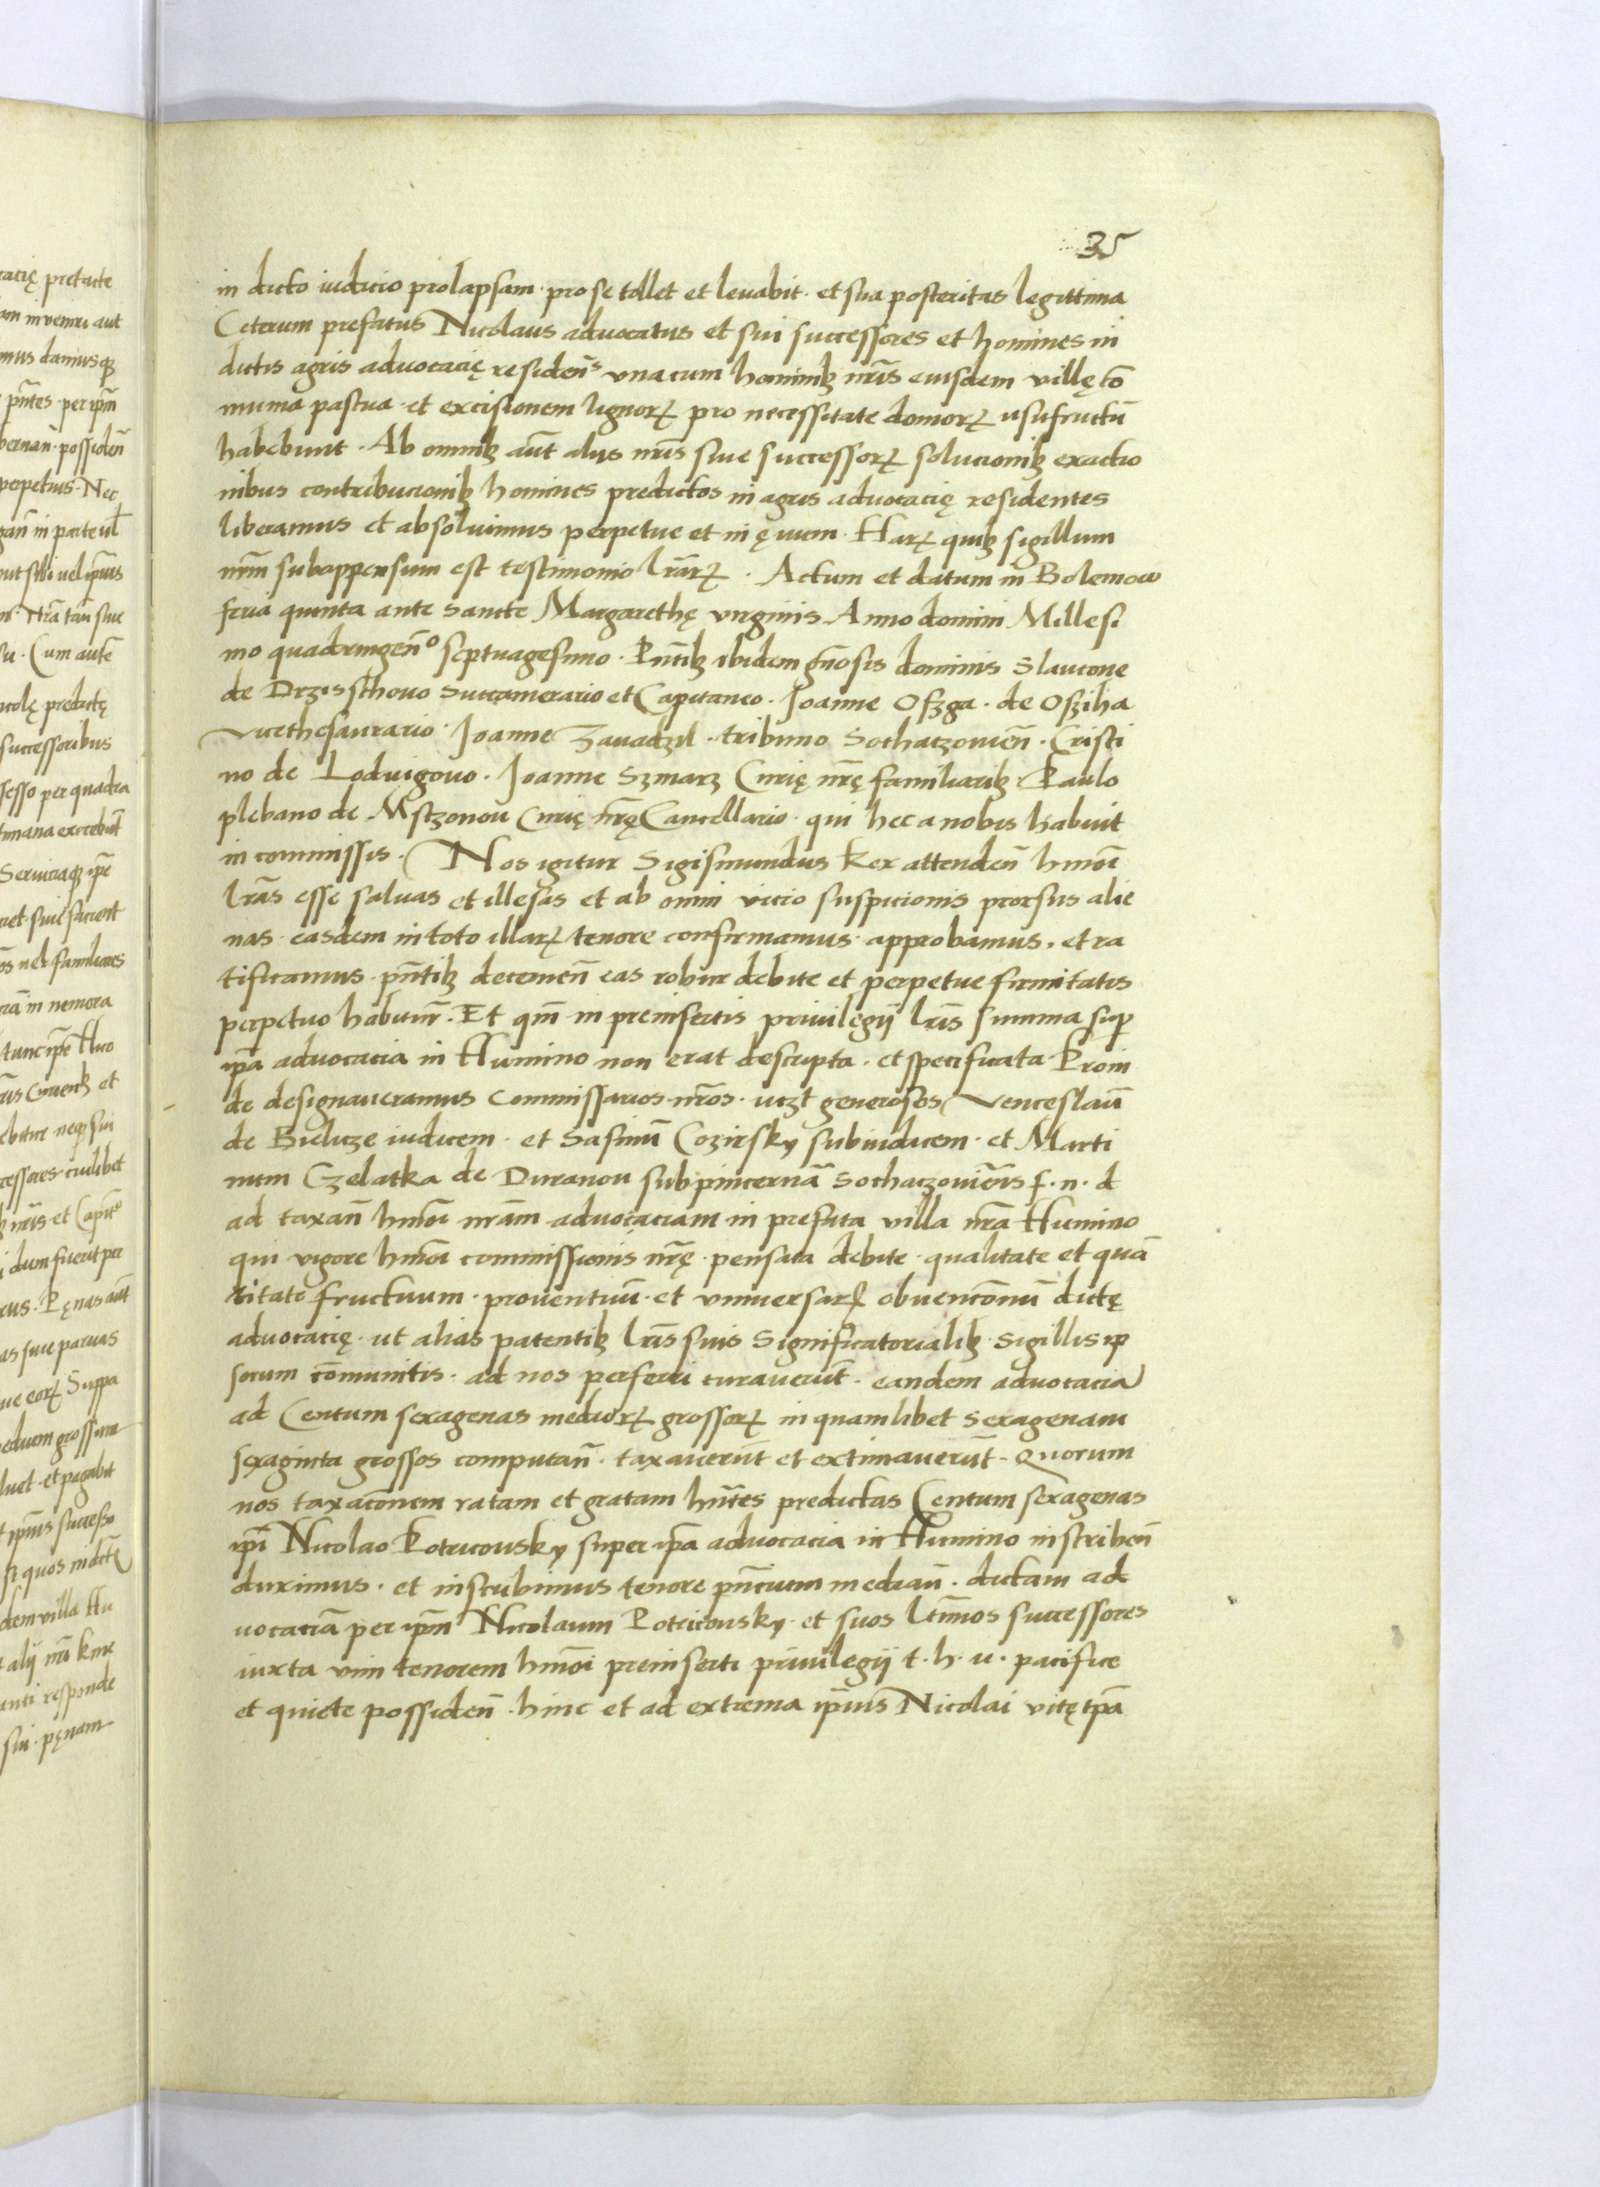 35
in dicto iudicio prolapsam · pro se tollet et levabit · et sua posteritas legittima
Ceterum prefatus Nicolaus advocatus et sui successores et homines in
dictis agris advocacię residen̄s una cum hominibꝫ nr̄is eiusdem villę cō
muna pascua · et excisionem lignorꝝ pro necessitate domorꝝ usufructū
habebunt · Ab omnibꝫ aūt aliis nr̄is sive successorꝝ solucionibꝫ exactio
nibus contribucionibꝫ homines predictos in agris advocacię residentes
liberamus et absolvimus perpetue et in ęvum · Harꝝ quibꝫ sigillum
nr̄m subappensum est testimonio lr̄arꝝ · Actum et datum in Bolemow
feria quinta ante sancte Margarethę virginis Anno domini Millesi
mo quadringen̄º septuagesimo · Pn̄tibꝫ ibidem gn̄osis dominis Slavcone
de Drzisthovo Succamerario et Capitaneo · Joanne Ofzga · de Ofziha
Vicethesaurario · Joanne Zavadzil · tribuno Sochatzovien̄ · Cristi
no de Lodvigovo · Joanne Szmarz Curię nr̄ę familiaribꝫ Paulo
plebano de Mstzonov Curię nr̄ę Cancellario · qui hec a nobis habuit
in commissis · Nos igitur Sigismundus Rex attenden̄ hmōi
lr̄as esse salvas et illesas et ab omni vicio suspicionis prorsus alie
nas · easdem in toto illarꝝ tenore confirmamus · approbamus · et ra
tificamus · pn̄tibꝫ decernen̄ eas robur debite et perpetue firmitatis
perpetuo habitur̄ · Et qm̄ in preinsertis privilegij lr̄is summa suꝑ
ip̄a advocacia in Humino non erat descripta · et specificata Proin
de designaveramus Commissarios nr̄os · vczt generosos Venceslaū
de Bielicze iudicem · et Sasinū Cozirsky subiudicem · et Marti
num Czelatka de Duranov subpincernā Sochaczovien̄sis f · n · d
ad taxan̄ hmōi nr̄am advocaciam in prefata villa nr̄a Humino
qui vigore hmōi commissionis nr̄ę · pensata debite · qualitate et quā
titate fructuum · proventuū · et universarꝝ obvencōnū dictę
advocacię · ut alias patentibꝫ lr̄is suis Significatorialibꝫ · Sigillis ip
sorum cōmunitis · ad nos perferri curaverūt · eandem advocaciā
ad Centum sexagenas mediorꝝ grossorꝝ in quamlibet sexagenam
sexaginta grossos computan̄ · taxaverūt et extimaverūt · Quorum
nos taxacōnem ratam et gratam hn̄tes predictas Centum sexagenas
ip̄i Nicolao Potricovsky super ip̄a advocacia in Humino inscriben̄
duximus · et inscribimus tenore pn̄cium median̄ · dictam ad
vocaciā per ip̄m Nicolaum Potricovsky · et suos ltīmos successores
iuxta vim tenorem hmōi preinserti privilegij t · h · v · pacifice
et quiete possiden̄ · hinc et ad extrema ip̄ius Nicolai vitę tp̄a